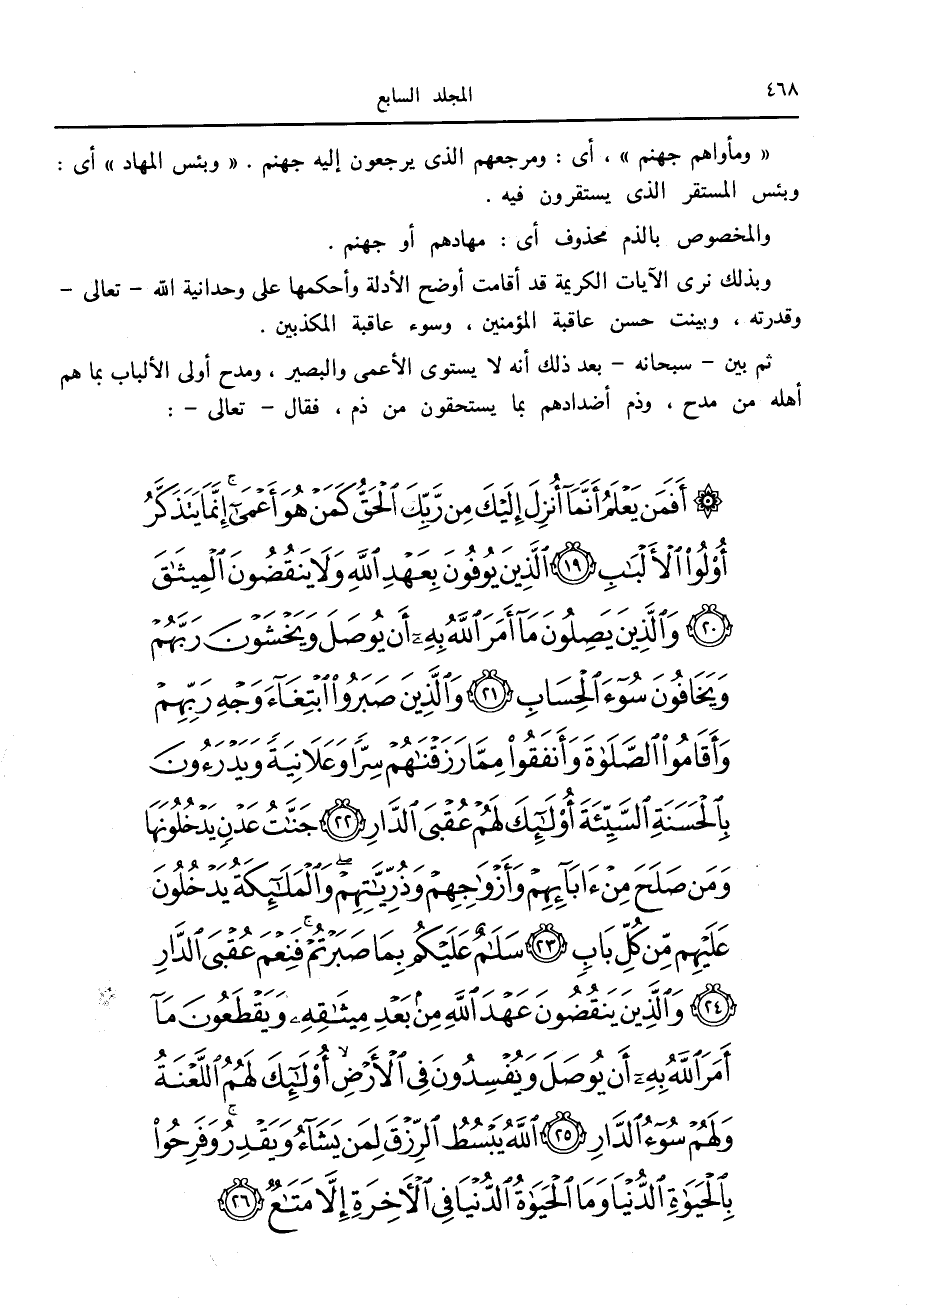 ٤٦٨
المجلد السابع
« ومأواهم جهنم » ، أى : ومرجعهم الذى يرجعون إليه جهنم . « وبئس المهاد » أى :
وبئس المستقر الذى يستقرون فيه .
والمخصوص بالذم محذوف أى : مهادهم أو جهنم .
وبذلك نرى الآيات الكريمة قد أقامت أوضح الأدلة وأحكمها على وحدانية الله – تعالى –
وقدرته ، وبينت حسن عاقبة المؤمنين ، وسوء عاقبة المكذبين .
ثم بين – سبحانه – بعد ذلك أنه لا يستوى الأعمى والبصير ، ومدح أولى الألباب بما هم
أهله من مدح ، وذم أضدادهم بما يستحقون من ذم ، فقال – تعالى – :
۞ أَفَمَن يَعْلَمُ أَنَّمَآ أُنزِلَ إِلَيْكَ مِن رَّبِّكَ ٱلْحَقُّ كَمَنْ هُوَ أَعْمَىٰٓ ۚ إِنَّمَا يَتَذَكَّرُ
أُو۟لُوا۟ ٱلْأَلْبَٰبِ ١٩ ٱلَّذِينَ يُوفُونَ بِعَهْدِ ٱللَّهِ وَلَا يَنقُضُونَ ٱلْمِيثَٰقَ
٢٠ وَٱلَّذِينَ يَصِلُونَ مَآ أَمَرَ ٱللَّهُ بِهِۦٓ أَن يُوصَلَ وَيَخْشَوْنَ رَبَّهُمْ
وَيَخَافُونَ سُوٓءَ ٱلْحِسَابِ ٢١ وَٱلَّذِينَ صَبَرُوا۟ ٱبْتِغَآءَ وَجْهِ رَبِّهِمْ
وَأَقَامُوا۟ ٱلصَّلَوٰةَ وَأَنفَقُوا۟ مِمَّا رَزَقْنَٰهُمْ سِرًّا وَعَلَانِيَةً وَيَدْرَءُونَ
بِٱلْحَسَنَةِ ٱلسَّيِّئَةَ أُو۟لَٰٓئِكَ لَهُمْ عُقْبَى ٱلدَّارِ ٢٢ جَنَّٰتُ عَدْنٍ يَدْخُلُونَهَا
وَمَن صَلَحَ مِنْ ءَابَآئِهِمْ وَأَزْوَٰجِهِمْ وَذُرِّيَّٰتِهِمْ ۖ وَٱلْمَلَٰٓئِكَةُ يَدْخُلُونَ
عَلَيْهِم مِّن كُلِّ بَابٍ ٢٣ سَلَٰمٌ عَلَيْكُم بِمَا صَبَرْتُمْ ۚ فَنِعْمَ عُقْبَى ٱلدَّارِ
٢٤ وَٱلَّذِينَ يَنقُضُونَ عَهْدَ ٱللَّهِ مِنۢ بَعْدِ مِيثَٰقِهِۦ وَيَقْطَعُونَ مَآ
أَمَرَ ٱللَّهُ بِهِۦٓ أَن يُوصَلَ وَيُفْسِدُونَ فِى ٱلْأَرْضِ ۙ أُو۟لَٰٓئِكَ لَهُمُ ٱللَّعْنَةُ
وَلَهُمْ سُوٓءُ ٱلدَّارِ ٢٥ ٱللَّهُ يَبْسُطُ ٱلرِّزْقَ لِمَن يَشَآءُ وَيَقْدِرُ ۚ وَفَرِحُوا۟
بِٱلْحَيَوٰةِ ٱلدُّنْيَا وَمَا ٱلْحَيَوٰةُ ٱلدُّنْيَا فِى ٱلْأَخِرَةِ إِلَّا مَتَٰعٌ ٢٦